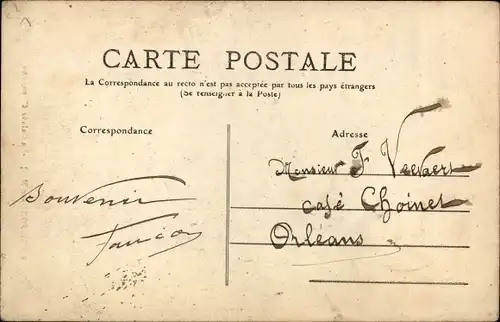 CARTE POSTALE
La Correspondance au recto n'est pas acceptée par tous les pays étrangers
(Se renseigner à la Poste)
Correspondance
Adresse
Monsieur F
Café Choinet
Orléans
Souvenir